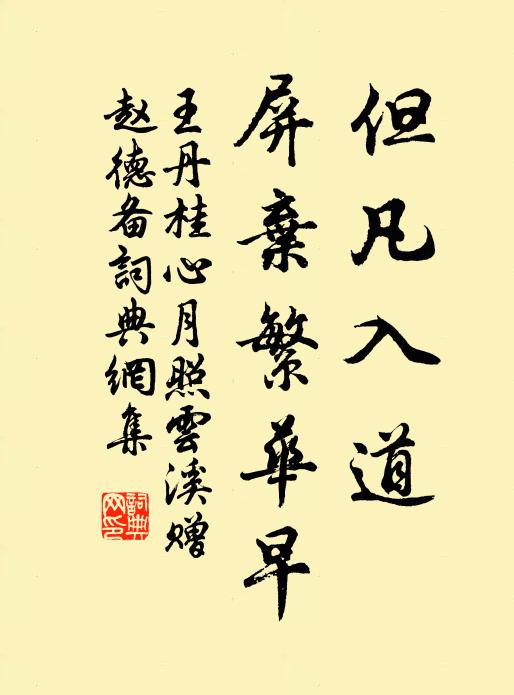 但凡入道
屏棄繁華早
王丹桂心月照雲溪贈
赵德备詞典網集
詞典
网印